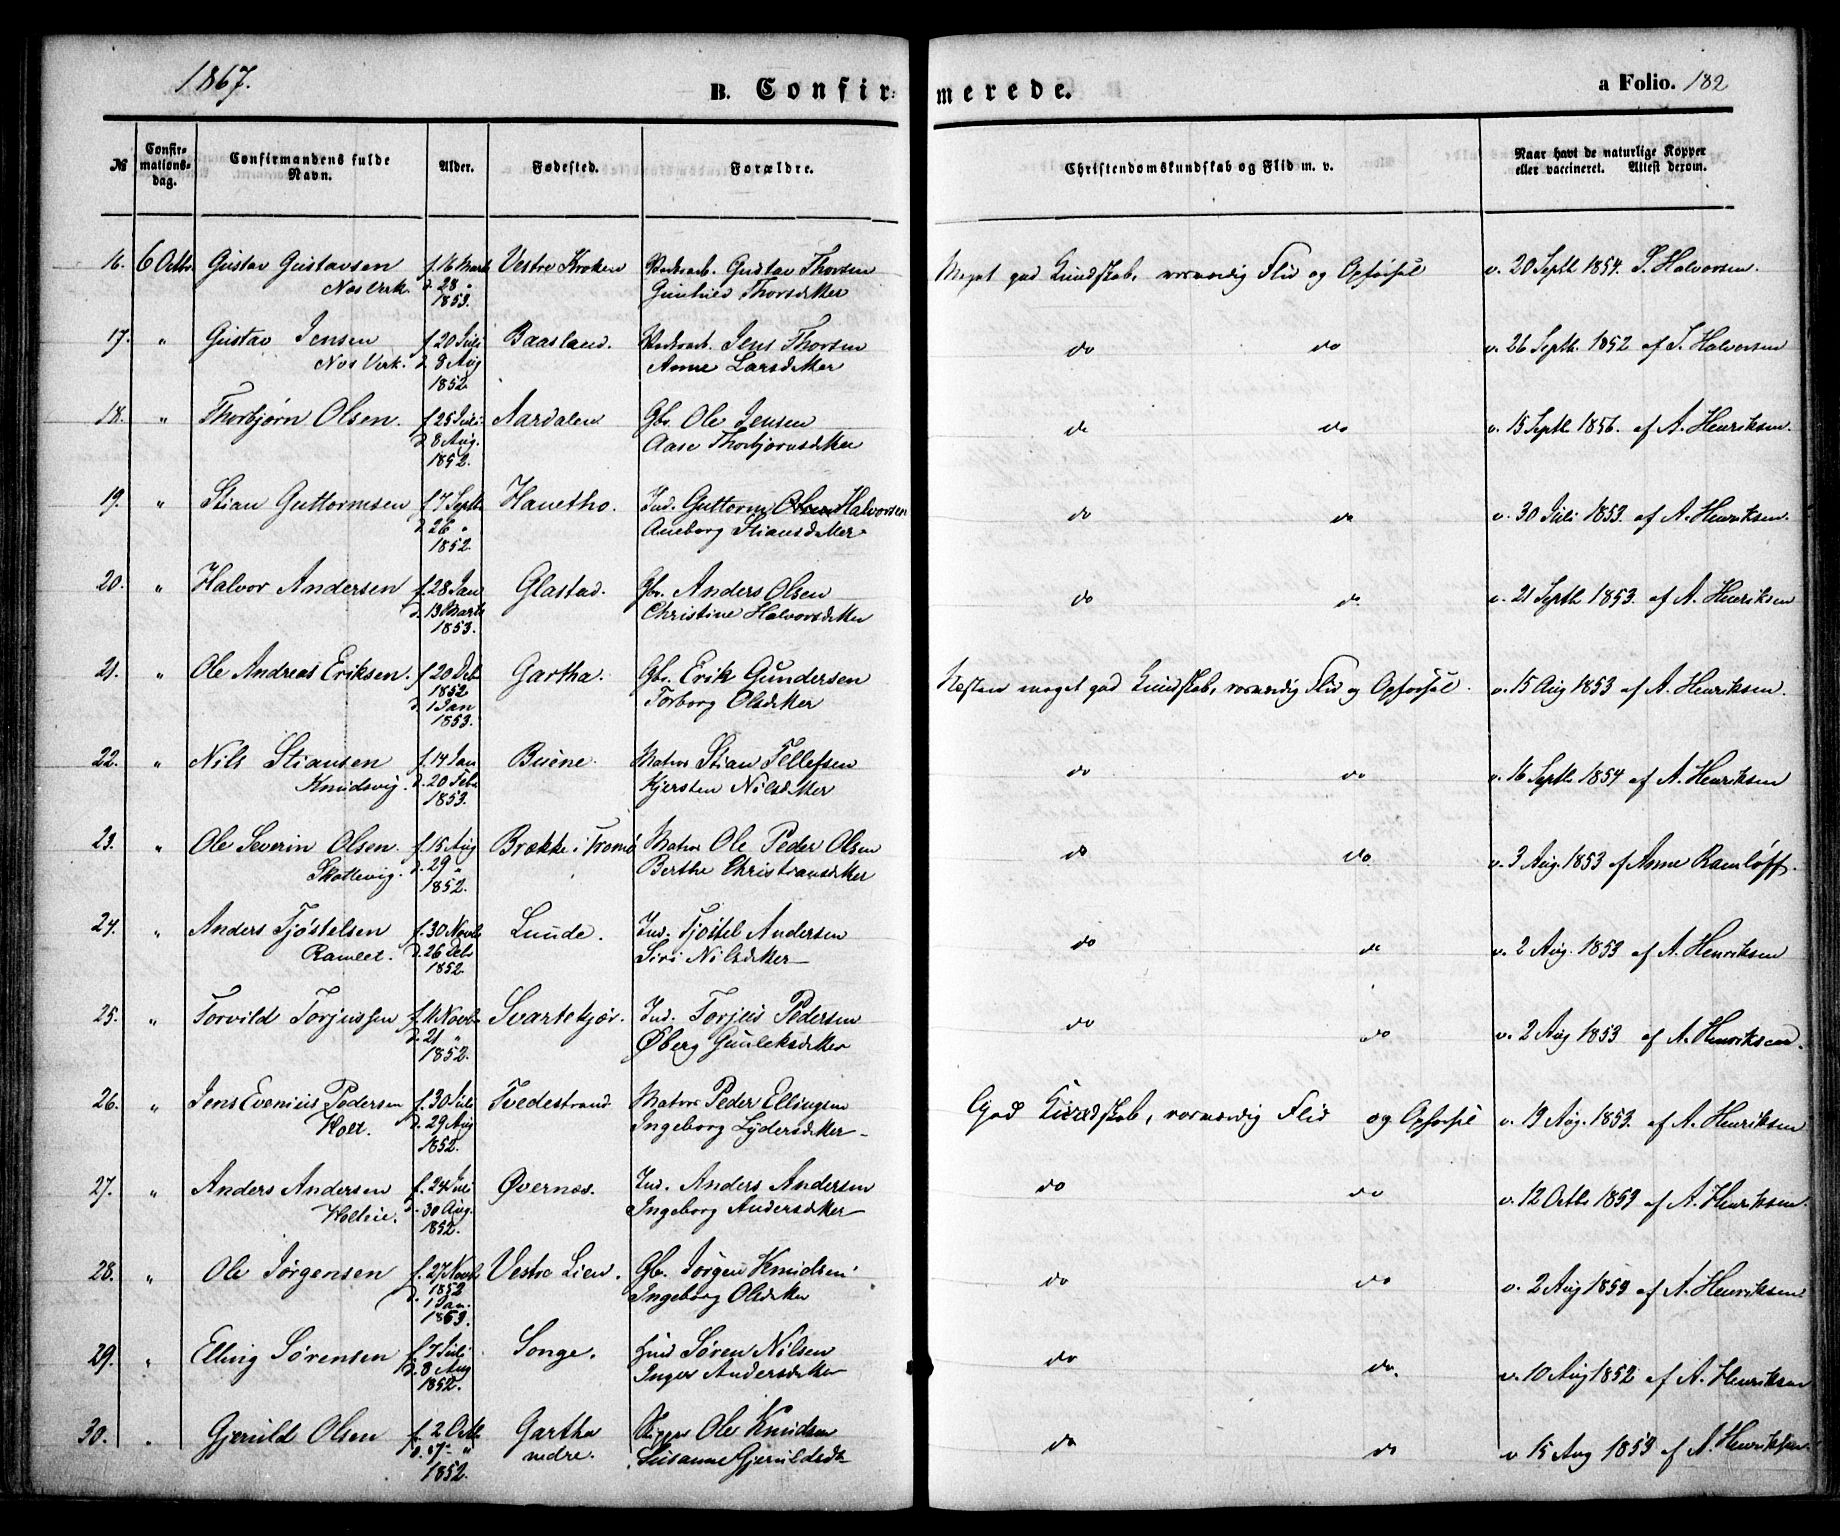 1867.
B. Confir- merede.
a Folio. 182
№ Confirmationsdag. Confirmandens fulde Navn. Alder. Fødested. Forældre. Christendomskundskab og Flid m. v. Naar havt de naturlige Kopper eller vaccineret. Attest derom.
16. 6 Octbr Gustav Gustavsen f. 16 Marts Vestre Kroken Gustav Thorsen Meget god Kundskab, vorværdig Flid og Opførsel v. 20 Septb 1854. T. Halvorsen.
Næs Verk. d. 28 " Gunhild Thorsdatter
1853.
17. " Gustav Jensen f. 20 Juli Baasland. Jens Thorsen do do v. 26 Septb. 1852 af T. Halvorsen
Næs Verk. d. 8 Aug Anne Larsdatter
1852
18. " Thorbjørn Olsen. f. 25 Juli Aardalen Gbr. Ole Jensen do do v. 15 Septb 1856. af A. Henriksen.
d. 8 Aug. Aase Thorbjørnsdatter
1852.
19. " Stian Guttormsen f. 7 Septb Hanetho. Ind. Guttorm Halvorsen do do v. 30 Juli 1853. af A. Henriksen.
d. 26 " Anneborg Stiansdatter
1852
20. " Halvor Andersen f. 28 Jan Glastad. Gbr. Anders Olsen do do v. 21 Septb 1853. af A. Henriksen
d. 13 Marts Christine Halvorsdatter
1853.
21. " Ole Andreas Eriksen. f. 20 Deb Gartha. Gbr. Erik Gundersen Næsten meget god Kundskab, vorværdig Flid og Opførsel. v. 15 Aug 1853 af A. Henriksen.
1852 Torborg Olsdatter
d. 1 Jan
1853.
22. " Nils Stiansen f. 14 Jan Buene. Matros Stian Tellefsen do do v. 16 Septb 1854 af A. Henriksen
Knudsvig. d. 20 Feb. Kjersten Nilsdatter
1853.
23. " Ole Severin Olsen. f. 15 Aug Brække i Tromø Matros Ole Peder Olsen do do v. 3 Aug. 1853 af Anne Ramløff.
Skottevig. d. 29 " Berthe Christiansdatter
1852.
24. " Anders Tjøstelsen f. 30 Novb Lunde. Ind. Tjøstel Andersen do do v. 2 Aug. 1853 af A. Henriksen
Ramlet. d. 26 Deb Siri Nilsdatter
1852.
25. " Torvild Torjussen f. 11 Novb Svartekjær. Ind. Torjus Pedersen do do v. 2 Aug 1853 af A. Henriksen.
d. 21 " Øberg Gunleksdatter
1852.
26. " Jens Evenius Pedersen f. 30 Juli Tvedestrand Matros Peder Ellingsen God Kundskab, vorværdig Flid og Opførsel v. 13 Aug. 1853. af A. Henriksen
Holt. d. 29 Aug Ingeborg Lydersdatter
1852.
27. " Anders Andersen f. 24 Juli Øvernæs. Ind. Anders Andersen do do v. 12 Octb 1853 af A. Henriksen.
Holteie. d. 30 Aug. Ingeborg Andersdatter
1852.
28. " Ole Jørgensen f. 27 Novb Vestre Lien. Gbr. Jørgen Knudsen do do v. 2 Aug 1853 af A. Henriksen
1852 Ingeborg Olsdatter
d. 1 Jan.
1853.
29. " Elling Sørensen f. 7 Juli Songe. Søren Nilsen do do. v. 10 Aug 1852 af A. Henriksen
d. 8 Aug Inger Andersdatter
1852.
30. " Gjeruld Olsen f. 2 Octb Gartha Ole Knudsen do do v. 15 Aug 1853 af A. Henriksen.
d. 17 " nedre. Susanne Gjeruldsdt
1852.